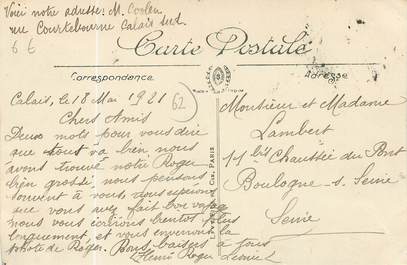 Voici notre adresse: M. Coolen
rue Courtebourne Calais sud.
6 €
Carte Postale
Correspondance
Adresse
Calais, le 18 Mai 1921
62
Chers Amis
Deux mots pour vous dire
que tout va bien nous
avons trouvé notre Roger
bien grossi, nous pensons
souvent à vous, nous espérons
que vous avez fait bon voyage
nous vous écrirons bientôt plus
longuement et vous enverrons la
photo de Roger. Bons baisers à tous
Henri Roger
Monsieur et Madame
Lambert
11 bis Chaussée du Pont
Boulogne s. Seine
Seine
PARIS